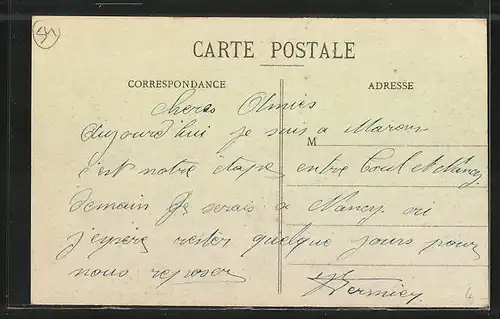 CARTE POSTALE
CORRESPONDANCE
ADRESSE
M
Cheres Amies
Aujourd'hui je suis a Maron
c'est notre étape entre Toul et Nancy.
demain Je serais a Nancy. ou
j'espère rester quelque jours pour
nous reposer
4